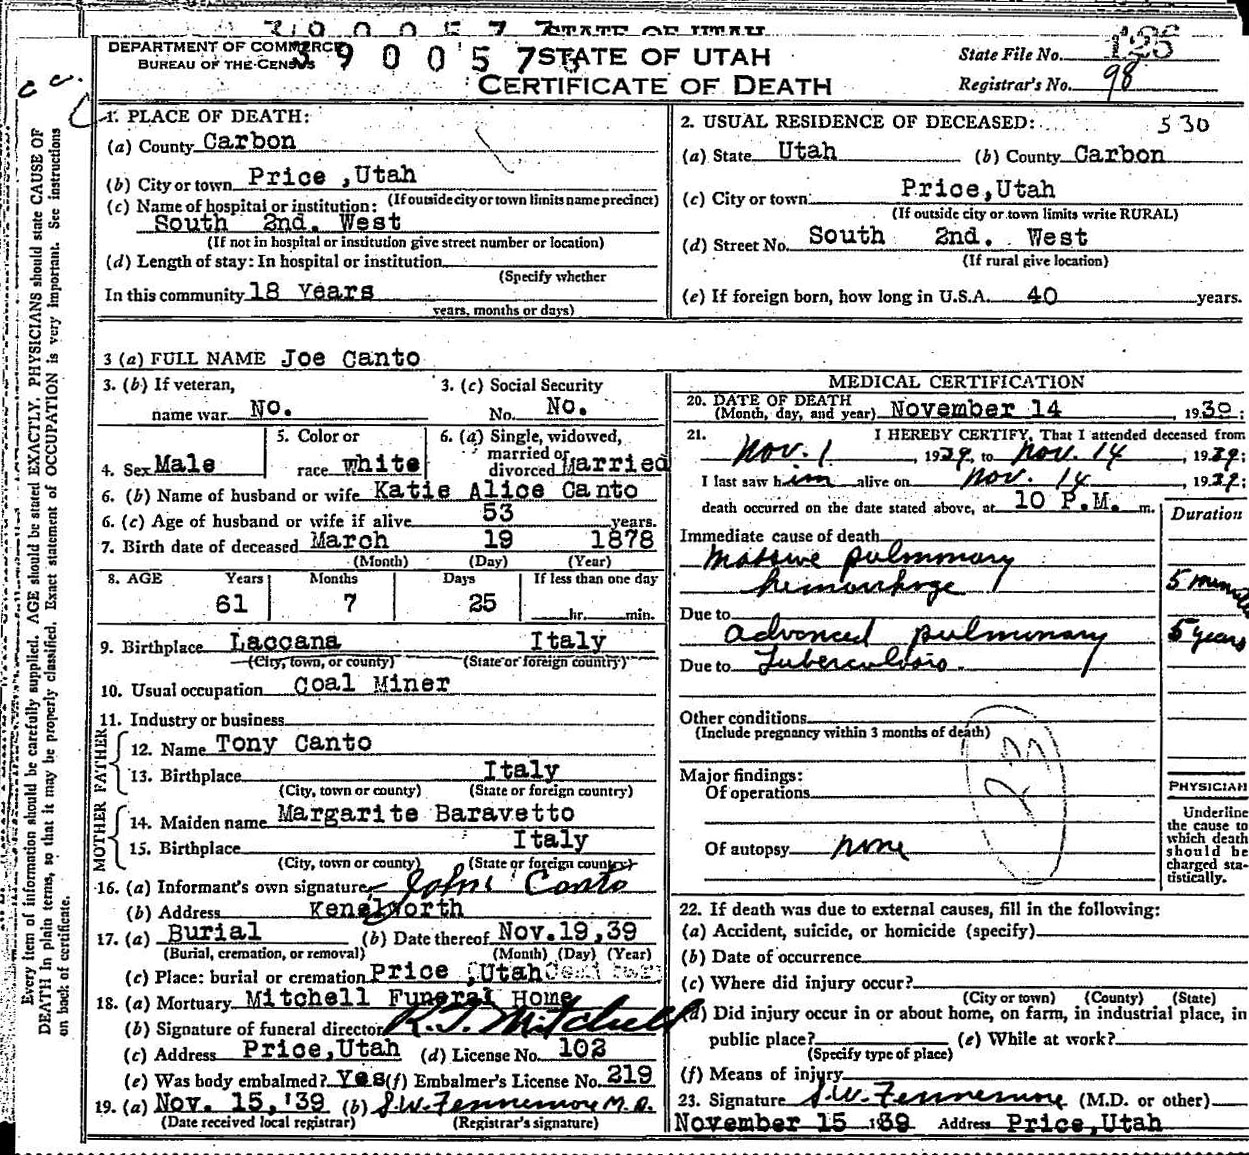 DEPARTMENT OF COMMERCE
BUREAU OF THE CENSUS
3 9 0 0 5 7
STATE OF UTAH
CERTIFICATE OF DEATH
State File No. 125
Registrar's No. 98
Every item of information should be carefully supplied. AGE should be stated EXACTLY. PHYSICIANS should state CAUSE OF
DEATH in plain terms, so that it may be properly classified. Exact statement of OCCUPATION is very important. See instructions
on back of certificate.
1. PLACE OF DEATH:
(a) County Carbon
(b) City or town Price ,Utah
(If outside city or town limits name precinct)
(c) Name of hospital or institution:
South 2nd. West
(If not in hospital or institution give street number or location)
(d) Length of stay: In hospital or institution
(Specify whether
In this community 18 Years
years, months or days)
2. USUAL RESIDENCE OF DECEASED: 530
(a) State Utah (b) County Carbon
(c) City or town Price,Utah
(If outside city or town limits write RURAL)
(d) Street No. South 2nd. West
(If rural give location)
(e) If foreign born, how long in U.S.A. 40 years.
3 (a) FULL NAME Joe Canto
3. (b) If veteran, name war No.
3. (c) Social Security No. No.
4. Sex Male
5. Color or race white
6. (a) Single, widowed, married or divorced Married
6. (b) Name of husband or wife Katie Alice Canto
6. (c) Age of husband or wife if alive 53 years.
7. Birth date of deceased March 19 1878
(Month) (Day) (Year)
8. AGE Years Months Days If less than one day
61 7 25 hr. min.
9. Birthplace Laccana Italy
(City, town, or county) (State or foreign country)
10. Usual occupation Coal Miner
11. Industry or business
FATHER
12. Name Tony Canto
13. Birthplace Italy
(City, town or county) (State or foreign country)
MOTHER
14. Maiden name Margarite Baravetto
15. Birthplace Italy
(City, town or county) (State or foreign country)
16. (a) Informant's own signature John Canto
(b) Address Kenelworth
17. (a) Burial (b) Date thereof Nov.19,39
(Burial, cremation, or removal) (Month) (Day) (Year)
(c) Place: burial or cremation Price ,Utah
18. (a) Mortuary Mitchell Funeral Home
(b) Signature of funeral director R.T. Mitchell
(c) Address Price,Utah (d) License No. 102
(e) Was body embalmed? Yes (f) Embalmer's License No. 219
19. (a) Nov. 15,'39 (b) S.W. Fennemore M.D.
(Date received local registrar) (Registrar's signature)
MEDICAL CERTIFICATION
20. DATE OF DEATH
(Month, day, and year) November 14 , 1939;
21. I HEREBY CERTIFY, That I attended deceased from
Nov. 1 , 1939, to Nov. 14 , 1939;
I last saw him alive on Nov. 14 , 1939;
death occurred on the date stated above, at 10 P.M. m.
Duration
Immediate cause of death
Massive pulmonary
hemorrhage 5 minutes
Due to
advanced pulmonary 5 years
Due to Tuberculosis
Other conditions
(Include pregnancy within 3 months of death)
Major findings:
Of operations
Of autopsy none
PHYSICIAN
Underline
the cause to
which death
should be
charged sta-
tistically.
22. If death was due to external causes, fill in the following:
(a) Accident, suicide, or homicide (specify)
(b) Date of occurrence
(c) Where did injury occur?
(City or town) (County) (State)
(d) Did injury occur in or about home, on farm, in industrial place, in
public place? (e) While at work?
(Specify type of place)
(f) Means of injury
23. Signature S.W. Fennemore (M.D. or other)
November 15 1939 Address Price,Utah